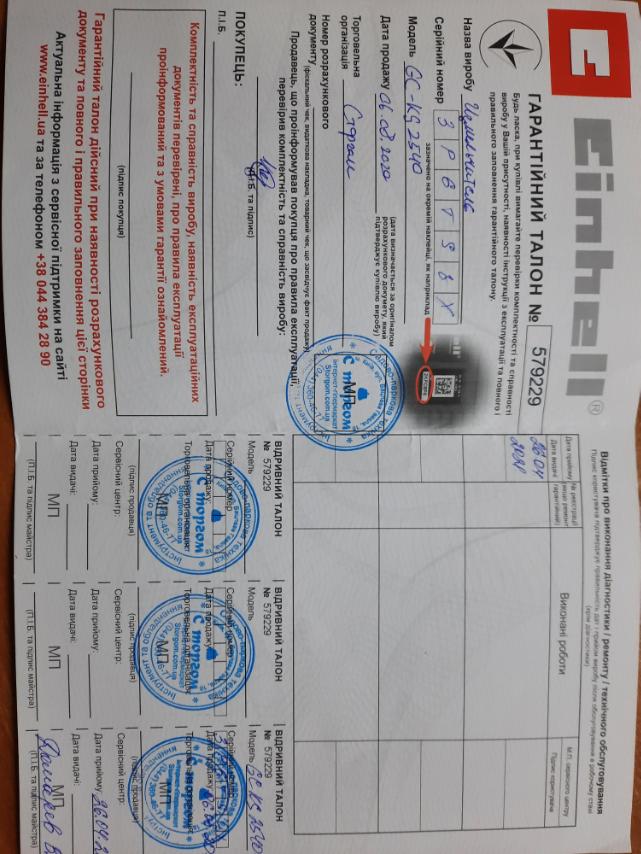 Einhell®
ГАРАНТІЙНИЙ ТАЛОН № 579229
Будь ласка, при купівлі вимагайте перевірки комплектності та справності
виробу у Вашій присутності, наявності інструкції з експлуатації та повного і
правильного заповнення гарантійного талону.
Назва виробу Измельчитель
Серійний номер
Модель GC-KS 2540
зазначено на окремій наклейці, як наприклад
Дата продажу 06.08.2020
(дата визначається за оригіналом
розрахункового документу, який
підтверджує купівлю виробу)
Торговельна
організація Сторгом
Номер розрахункового
документу
(фіскальний чек, видаткова накладна, товарний чек, що засвідчує факт продажу)
Продавець, що проінформував покупця про правила експлуатації,
перевірив комплектність та справність виробу:
(П.І.Б. та підпис)
ПОКУПЕЦЬ:
П.І.Б.
Комплектність та справність виробу, наявність експлуатаційних
документів перевірені, про правила експлуатації
проінформований та з умовами гарантії ознайомлений.
(підпис покупця)
Гарантійний талон дійсний при наявності розрахункового
документу та повного і правильного заповнення цієї сторінки
Актуальна інформація з сервісної підтримки на сайті
www.einhell.ua та за телефоном +38 044 384 28 90
МП
С торгом
Інтернет-гіпермаркет
Storgom.com.ua
Відмітки про виконання діагностики / ремонту / технічного обслуговування
Дата прийому
Дата видачі
№ реєстрації
Виконані роботи
М.П. сервісного центру
Підпис користувача
26.04
ВІДРИВНИЙ ТАЛОН
№ 579229
Модель
Серійний номер
Дата продажу
Торговельна організація:
МП
С торгом
Storgom.com.ua
(підпис продавця)
Сервісний центр:
Дата прийому:
Дата видачі:
МП
(П.І.Б. та підпис майстра)
ВІДРИВНИЙ ТАЛОН
№ 579229
Модель
Серійний номер
Дата продажу
Торговельна організація:
МП
С торгом
Storgom.com.ua
(підпис продавця)
Сервісний центр:
Дата прийому:
Дата видачі:
МП
(П.І.Б. та підпис майстра)
ВІДРИВНИЙ ТАЛОН
№ 579229
Модель GC-KS 2540
Дата продажу
МП
С торгом
Storgom.com.ua
(підпис продавця)
Сервісний центр:
Дата прийому 26.04.2
Дата видачі:
МП
(П.І.Б. та підпис майстра)